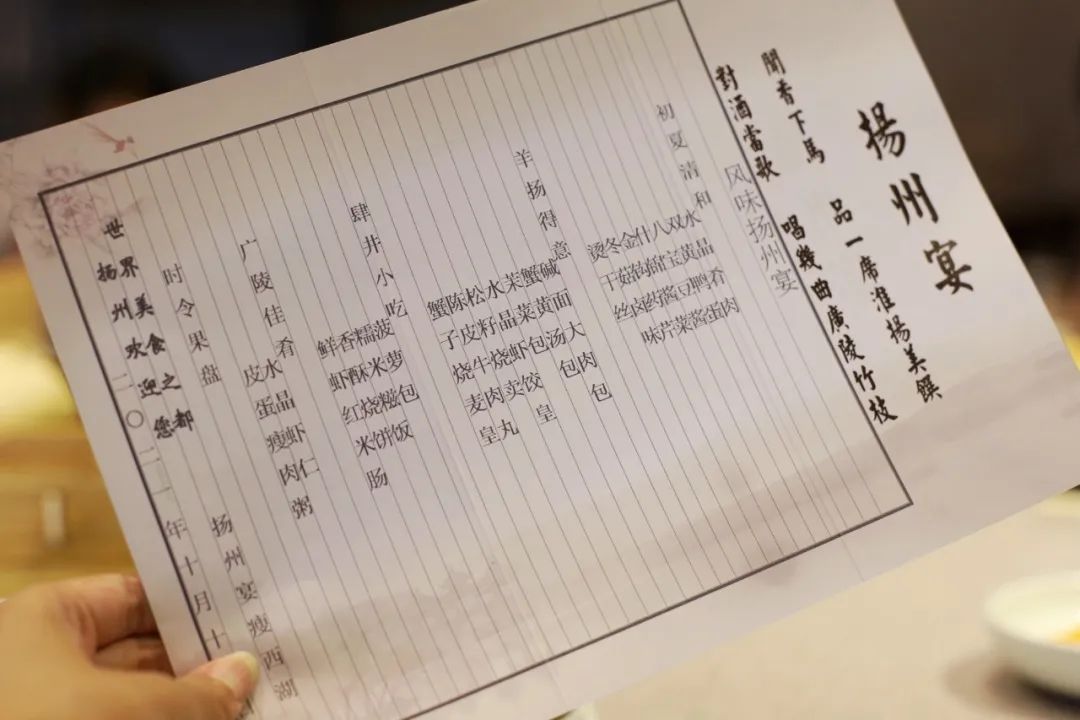 揚州宴
聞香下馬 品一席淮揚美饌
對酒當歌 唱幾曲廣陵竹枝
风味扬州宴
初夏清和
水晶肴肉
双黄鸭蛋
八宝豆酱
什锦酱菜
金钩药芹
冬菇卤味
烫干丝
羊扬得意
碱面大肉包
蟹黄汤包
茉菜包
水晶虾饺皇
松籽烧卖
陈皮牛肉丸
蟹子烧麦皇
肆井小吃
菠萝包
糯米糍饭
香酥烧饼
鲜虾红米肠
广陵佳肴
水晶虾仁
皮蛋瘦肉粥
时令果盘
世界美食之都
扬州欢迎您
扬州宴瘦西湖
二〇二一年十月十